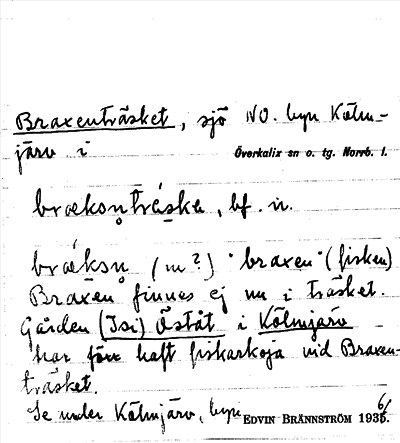 Braxenträsket, sjö NO. byn Kölm-
järv i Överkalix sn o. tg. Norrb. l.
brækso̥nträske, bf. n.
bræ´ksn̥ (m?) "braxen" (fisken)
Braxen finnes ej nu i träsket.
Gården (Isi) Öståt i Kölmjärv
har förr haft fiskarkoja vid Braxen-
träsket.
Se under Kölmjärv, byn
EDVIN BRÄNNSTRÖM 1935. 6/